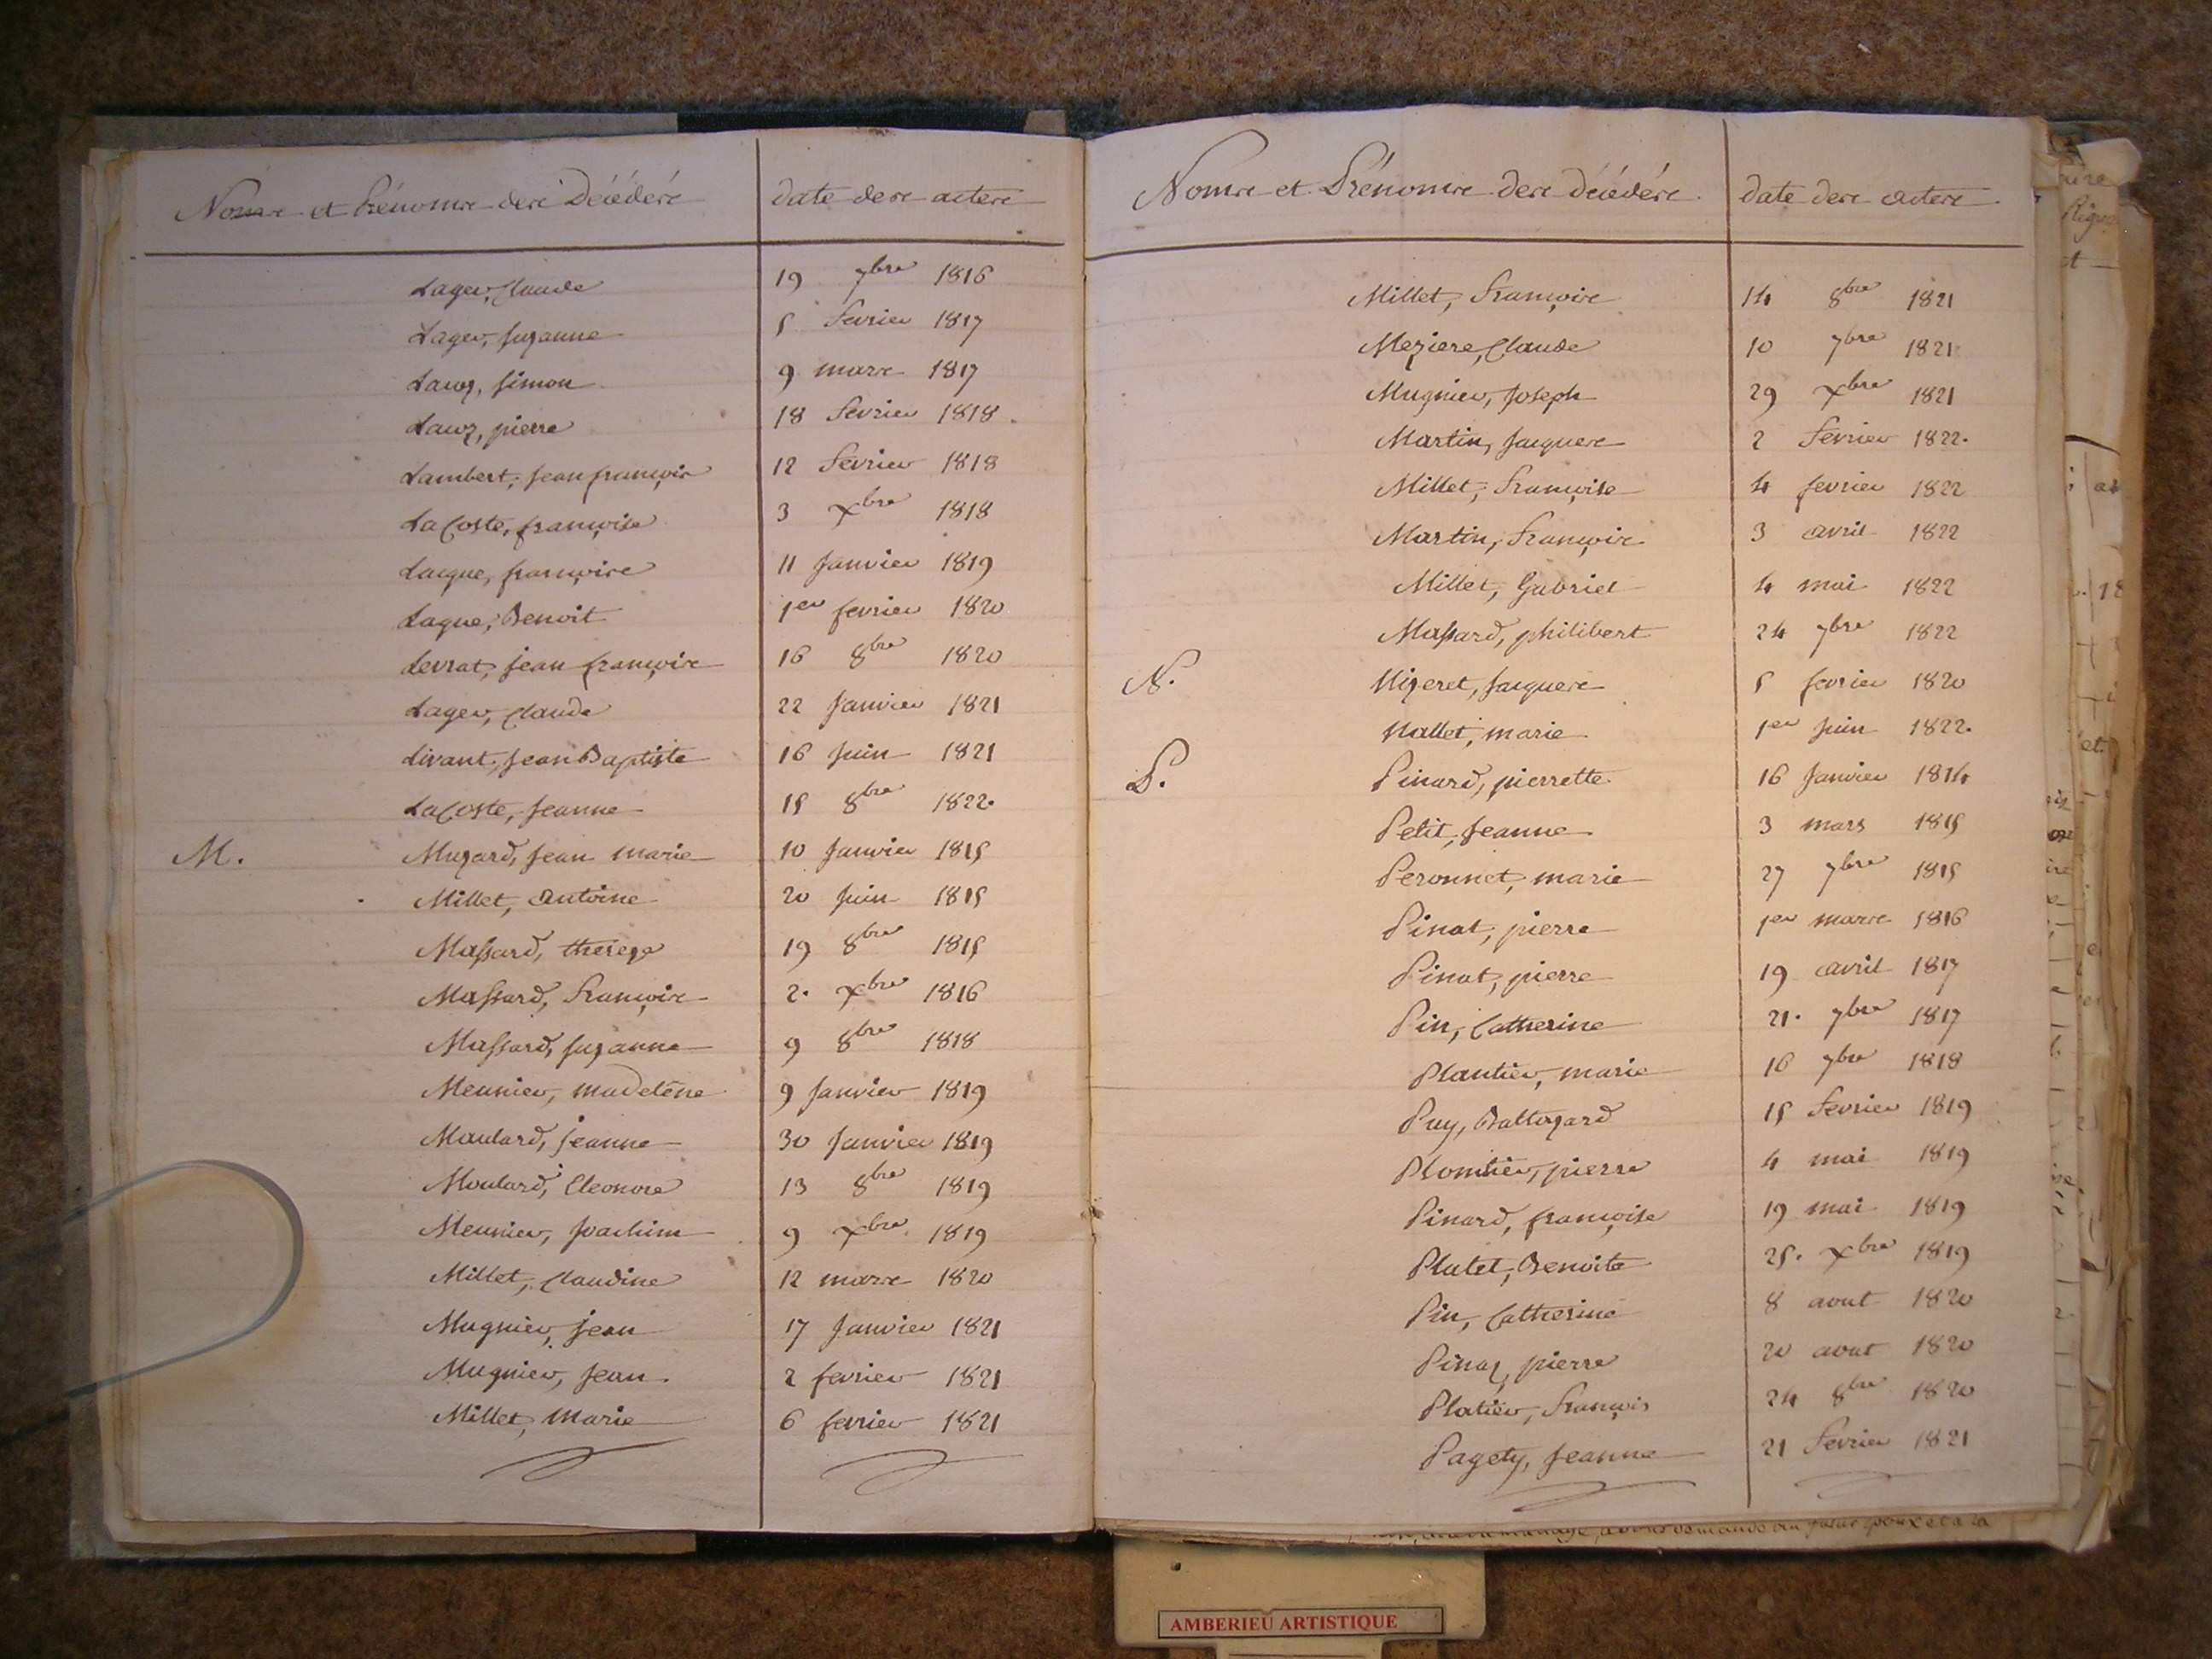 Noms et Prénoms des Décédés date des actes
Lager, Claude 19 7bre 1816
Lager, Suzanne 5 fevrier 1817
Lauz, Simon 9 mars 1817
Lauz, pierre 18 fevrier 1818.
Lambert, Jean françois 12 fevrier 1818
LaCoste, françoise 3 Xbre 1818
Lacque, françoise 11 Janvier 1819
Laque, Benoit 1er fevrier 1820
Levrat, jean françois 16 8bre 1820
Lager, Claude 22 Janvier 1821
Livant, Jean Baptiste 16 Juin 1821
LaCoste, Jeanne 15 8bre 1822.
M. Muzard, Jean marie 10 Janvier 1815
Millet, Antoine 20 Juin 1815
Massard, thereze 19 8bre 1815
Massard, François 2. Xbre 1816
Massard, Suzanne 9 8bre 1818
Meunier, madelène 9 Janvier 1819
Moulard, jeanne 30 Janvier 1819
Moulard, Eleonore 13 8bre 1819
Meunier, Joachim 9 Xbre 1819
Millet, Claudine 12 mars 1820
Mugnier, jean 17 Janvier 1821
Mugnier, Jean. 2 fevrier 1821
Millet, Marie 6 fevrier 1821
Noms et Prénoms des décédés. date des actes.
Millet, François 14 8bre 1821
Meziere, Claude 10 7bre 1821
Mugnier, Joseph 29 Xbre 1821
Martin, Jacques 2 Fevrier 1822.
Millet, Françoise 4 fevrier 1822
Martin, François 3 avril 1822
Millet, Gabriel 4 mai 1822
Massard, philibert 24 7bre 1822
N. Nizeret, Jacques 5 fevrier 1820
Nallet, marie 1er Juin 1822.
P. Pinard, pierrette 16 Janvier 1814
Petit, Jeanne 3 mars 1815
Peronnet, marie 27 7bre 1815
Pinat, pierre 1er mars 1816
Pinat, pierre 19 avril 1817
Pin, Catherine 21. 7bre 1817
Plantier, marie 16 7bre 1818
Puy, Baltazard 15 Fevrier 1819
Plombier, pierre 4 mai 1819
Pinard, françoise 19 mai 1819
Plutet, Benoite 25. Xbre 1819
Pin, Catherine 8 aout 1820
Pinaz, pierre 20 aout 1820
Platier, François 24 8bre 1820
Pagety, Jeanne 21 Fevrier 1821
AMBERIEU ARTISTIQUE